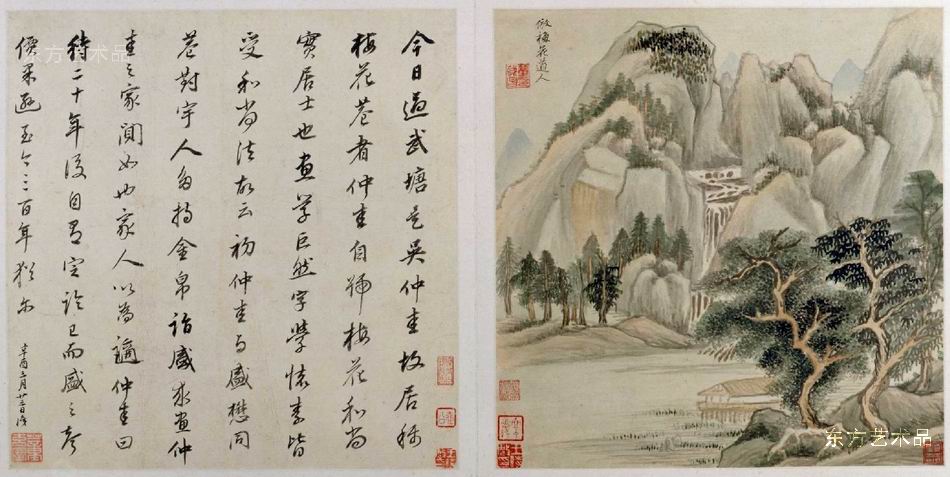 今日過武塘是吳仲圭故居稱
梅花菴者仲圭自號梅花和尚
實居士也畫學巨然字學懷素皆
受和尚法故云初仲圭與盛懋同
巷對宇人多持金帛詣盛求畫仲
圭之家闃如也家人以為誚仲圭曰
待二十年後自有定論已而盛之聲
價果遜至今三百年猶爾
辛酉三月廿三日識
倣梅花道人
东方艺术品
东方艺术品